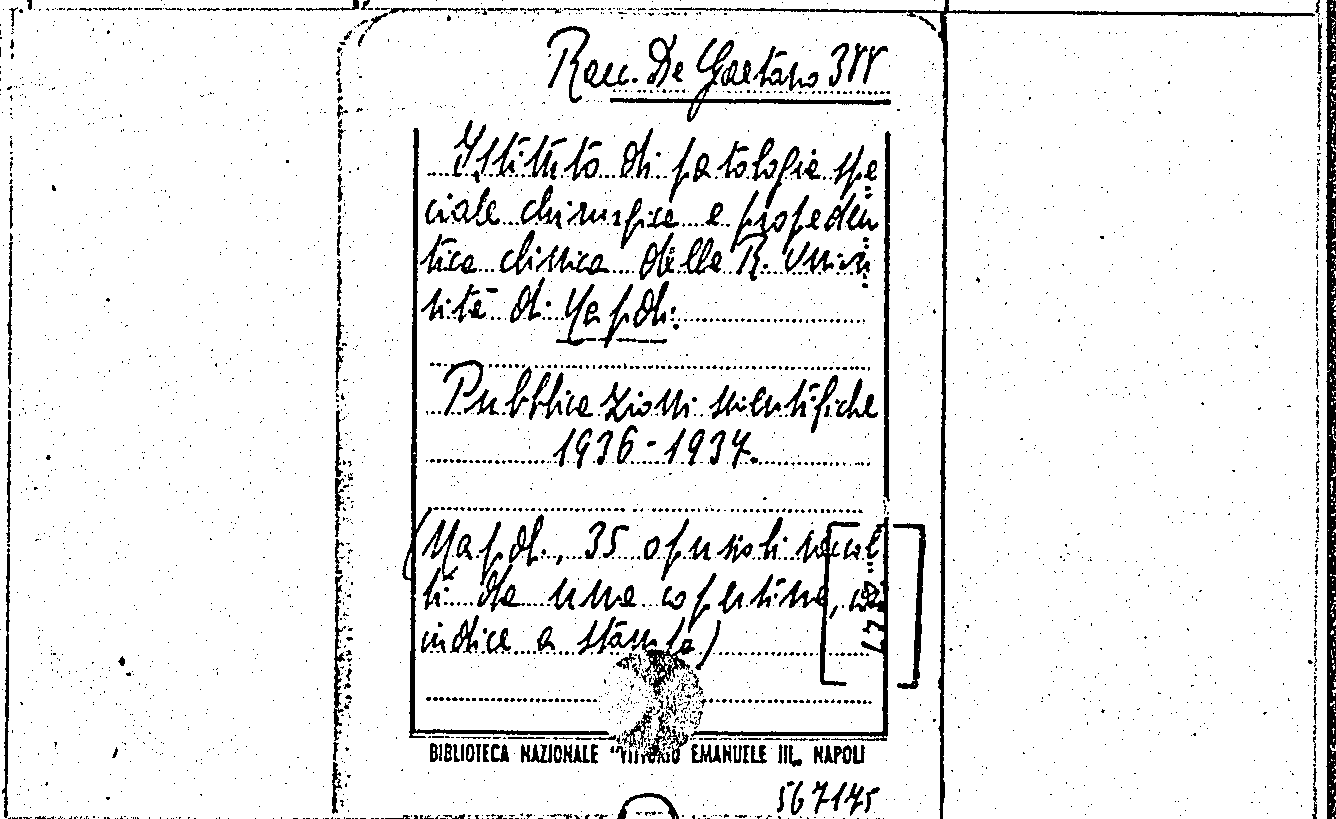 Racc. De Gaetano 388
Istituto di patologia spe
ciale chirurgica e propedeu
tica clinica della R. Univer
sità di Napoli.
Pubblicazioni scientifiche
1936-1937.
(Napoli, 35 opuscoli raccol
ti da una copertina, con
indice a stampa)
BIBLIOTECA NAZIONALE "VITTORIO EMANUELE III„ NAPOLI
567145